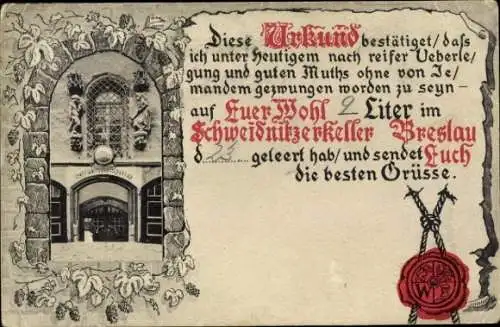 Diese Urkund bestätiget/ daß
ich unter Heutigem nach reifer Ueberle/
gung und guten Muths ohne von Je/
mandem gezwungen worden zu seyn –
auf Euer Wohl 2 Liter im
Schweidnitzer Keller Breslau
d. 23. geleert hab/ und sendet Euch
die besten Grüsse.
W